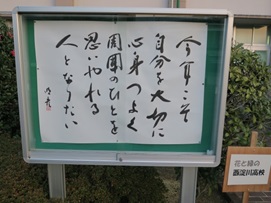 今年こそ
自分を大切に
心身つよく
周囲のひとを
思いやれる
人となりたい
花と緑の
西淀川高校